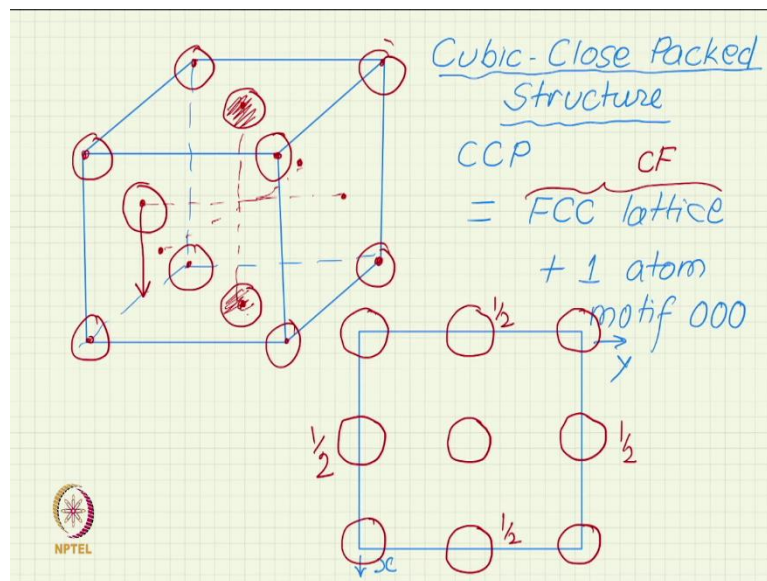 Cubic-Close Packed
Structure
CCP
CF
= FCC lattice
+ 1 atom
motif 000
1/2
y
1/2
1/2
1/2
x
NPTEL